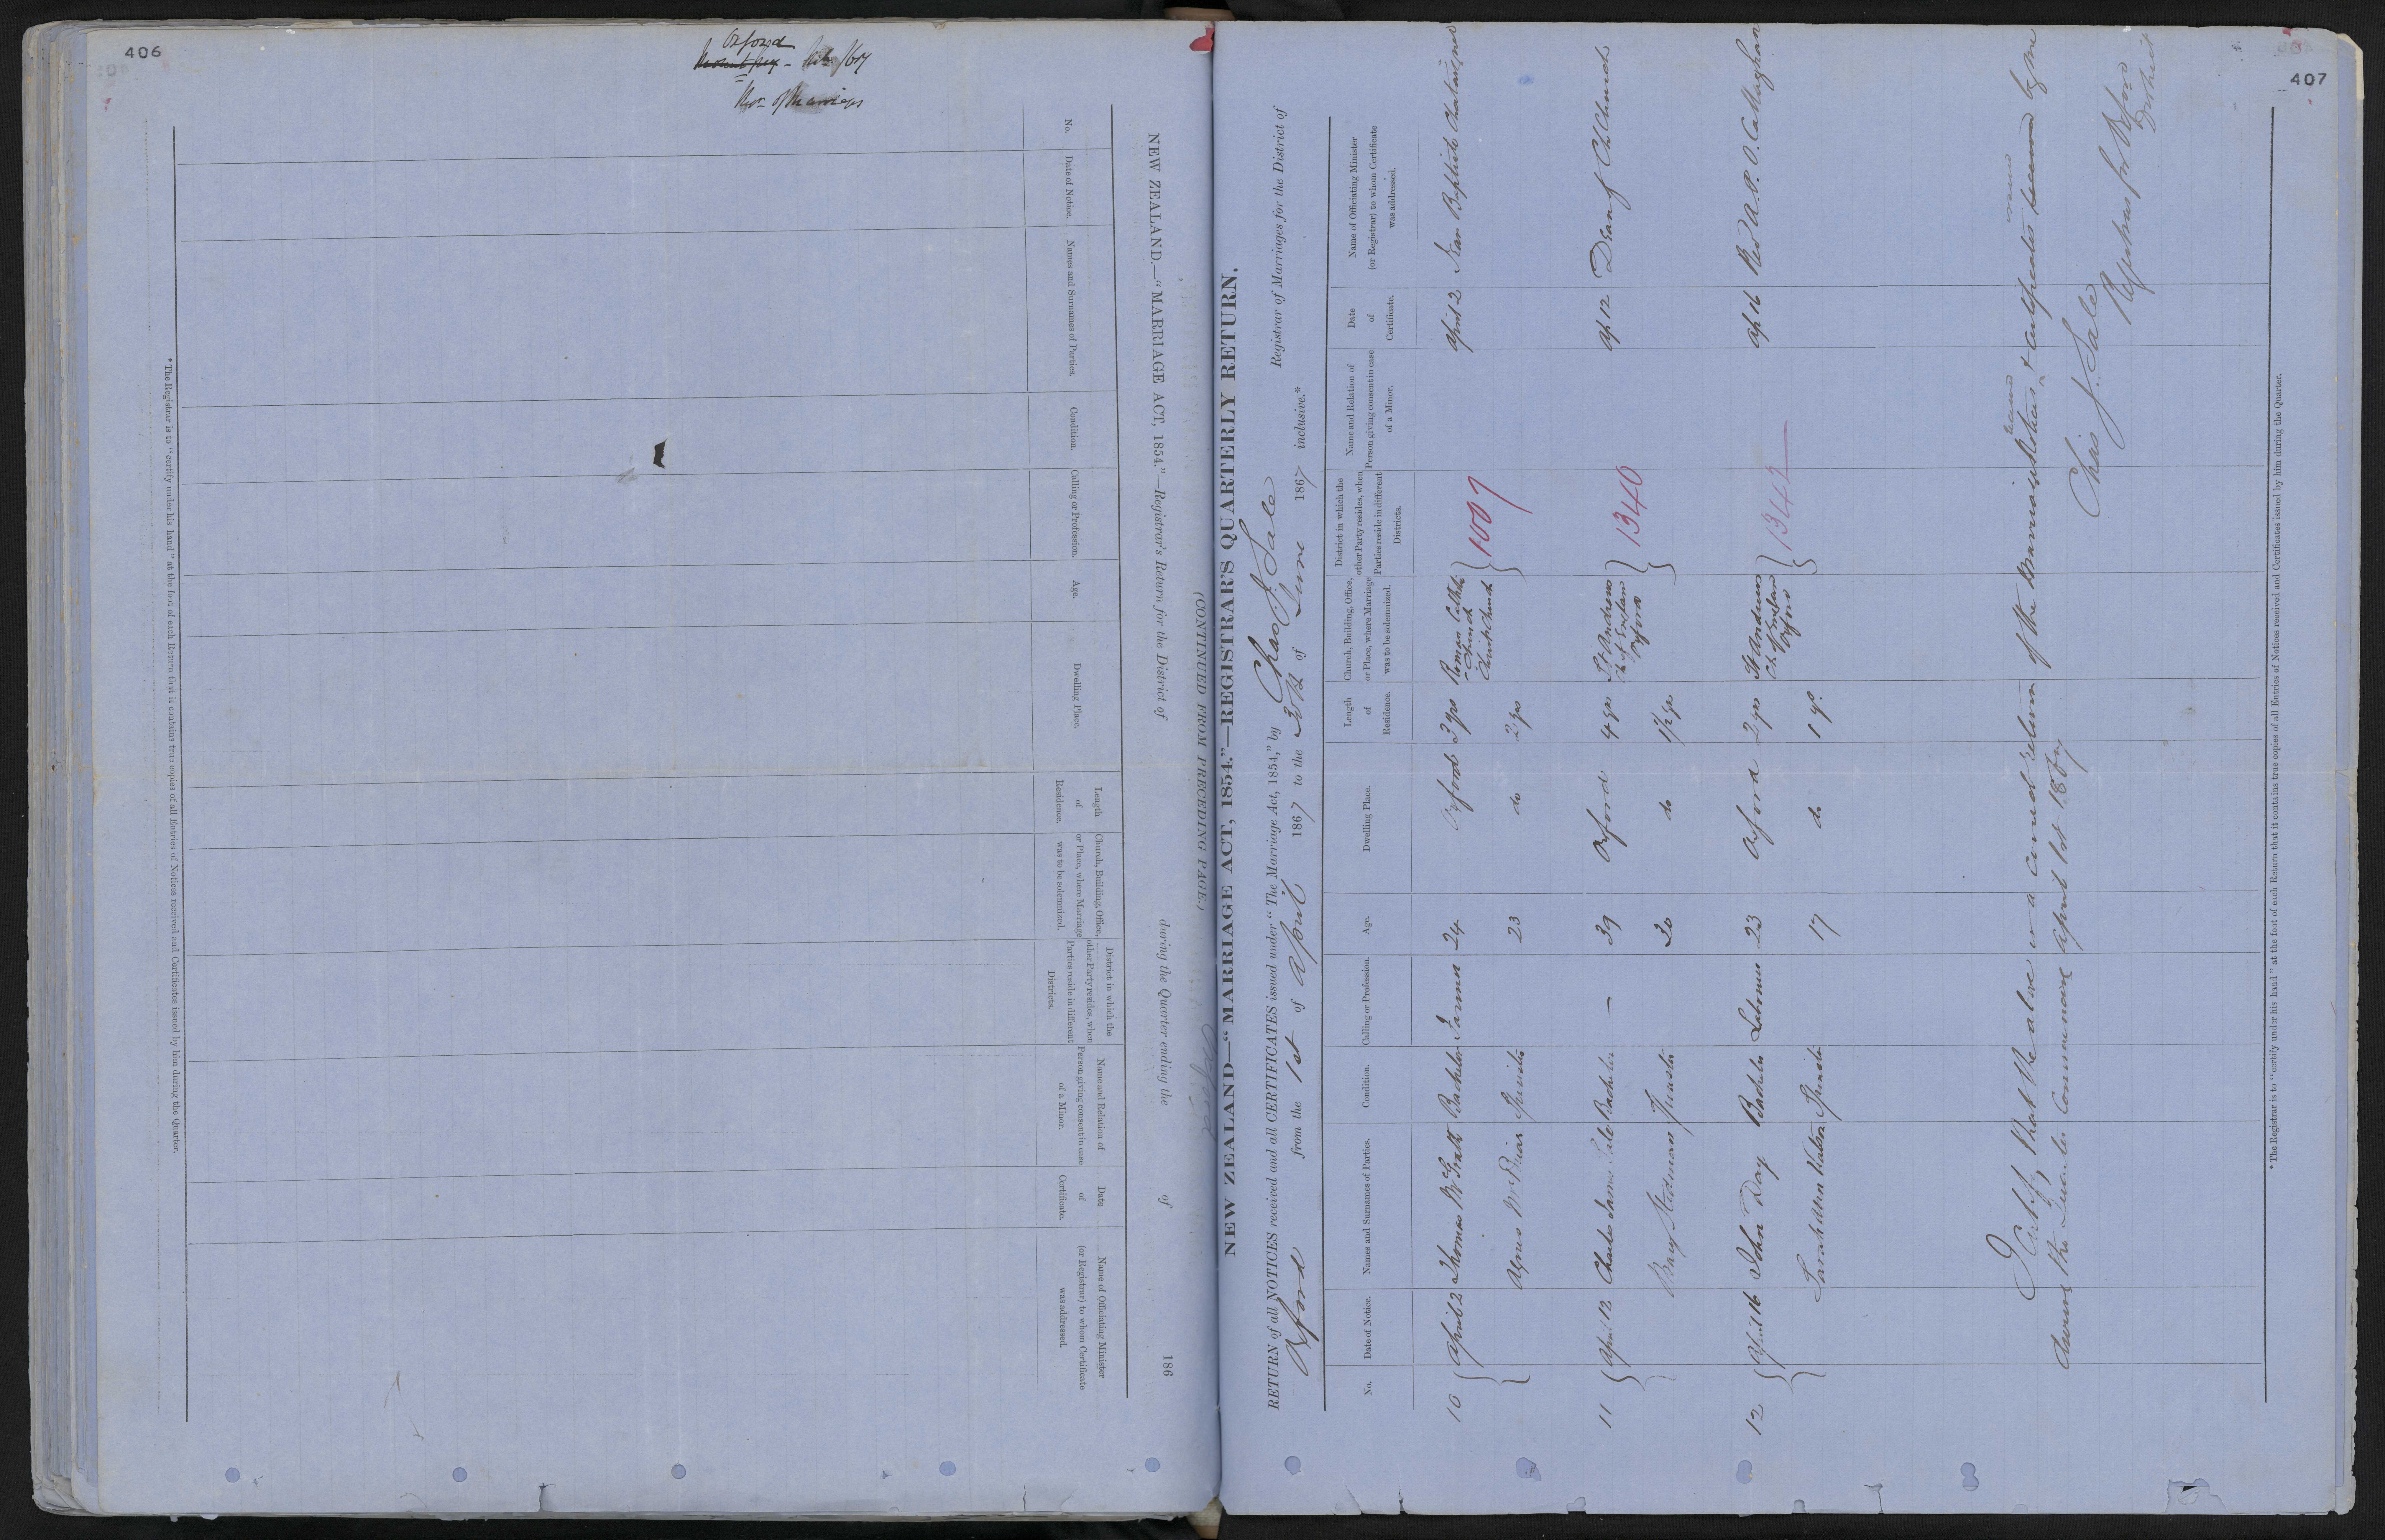 406
Oxford
Nos. of Marriages
NEW ZEALAND.—"MARRIAGE ACT, 1854."—Registrar's Return for the District of during the Quarter ending the of 186
(CONTINUED FROM PRECEDING PAGE.)
No.
Date of Notice.
Names and Surnames of Parties.
Condition.
Calling or Profession.
Age.
Dwelling Place.
Length
of
Residence.
Church, Building, Office,
or Place, where Marriage
was to be solemnized.
District in which the
other Party resides, when
Parties reside in different
Districts.
Name and Relation of
Person giving consent in case
of a Minor.
Date
of
Certificate.
Name of Officiating Minister
(or Registrar) to whom Certificate
was addressed.
*The Registrar is to "certify under his hand" at the foot of each Return that it contains true copies of all Entries of Notices received and Certificates issued by him during the Quarter.
407
NEW ZEALAND—"MARRIAGE ACT, 1854."—REGISTRAR'S QUARTERLY RETURN.
RETURN of all NOTICES received and all CERTIFICATES issued under "The Marriage Act, 1854," by Chas J. Sale Registrar of Marriages for the District of
Oxford from the 1st of April 1867 to the of June 1867 inclusive.*
No.
Date of Notice.
Names and Surnames of Parties.
Condition.
Calling or Profession.
Age.
Dwelling Place.
Length
of
Residence.
Church, Building, Office,
or Place, where Marriage
was to be solemnized.
District in which the
other Party resides, when
Parties reside in different
Districts.
Name and Relation of
Person giving consent in case
of a Minor.
Date
of
Certificate.
Name of Officiating Minister
(or Registrar) to whom Certificate
was addressed.
10 April 2 Thomas McGrath Bachelor Farmer 24 Oxford 3 yrs Roman Catholic Church Christchurch 1007 April 2 Jean Baptiste
Agnes Spinster 23 do 2 yrs
11 April 12 Charles James Sale Bachelor — 39 Oxford 4 yrs St Andrews Ch of England Oxford 1340 Ap 12 Dean of Ch Church
Mary Stedman Spinster 20 do 1½ yrs
12 April 16 John Day Bachelor Labourer 23 Oxford 2 yrs St Andrews Ch of England Oxford 1342 Ap 16 Revd A. P. O'Callaghan
Sarah Ann Spinster 17 do 1 yr
I Certify that the above is a correct return of the Marriage Notices received & certificates issued by me
during the Quarter commencing April 1st 1867
Chas J. Sale
Registrar for Oxford
District
* The Registrar is to "certify under his hand" at the foot of each Return that it contains true copies of all Entries of Notices received and Certificates issued by him during the Quarter.